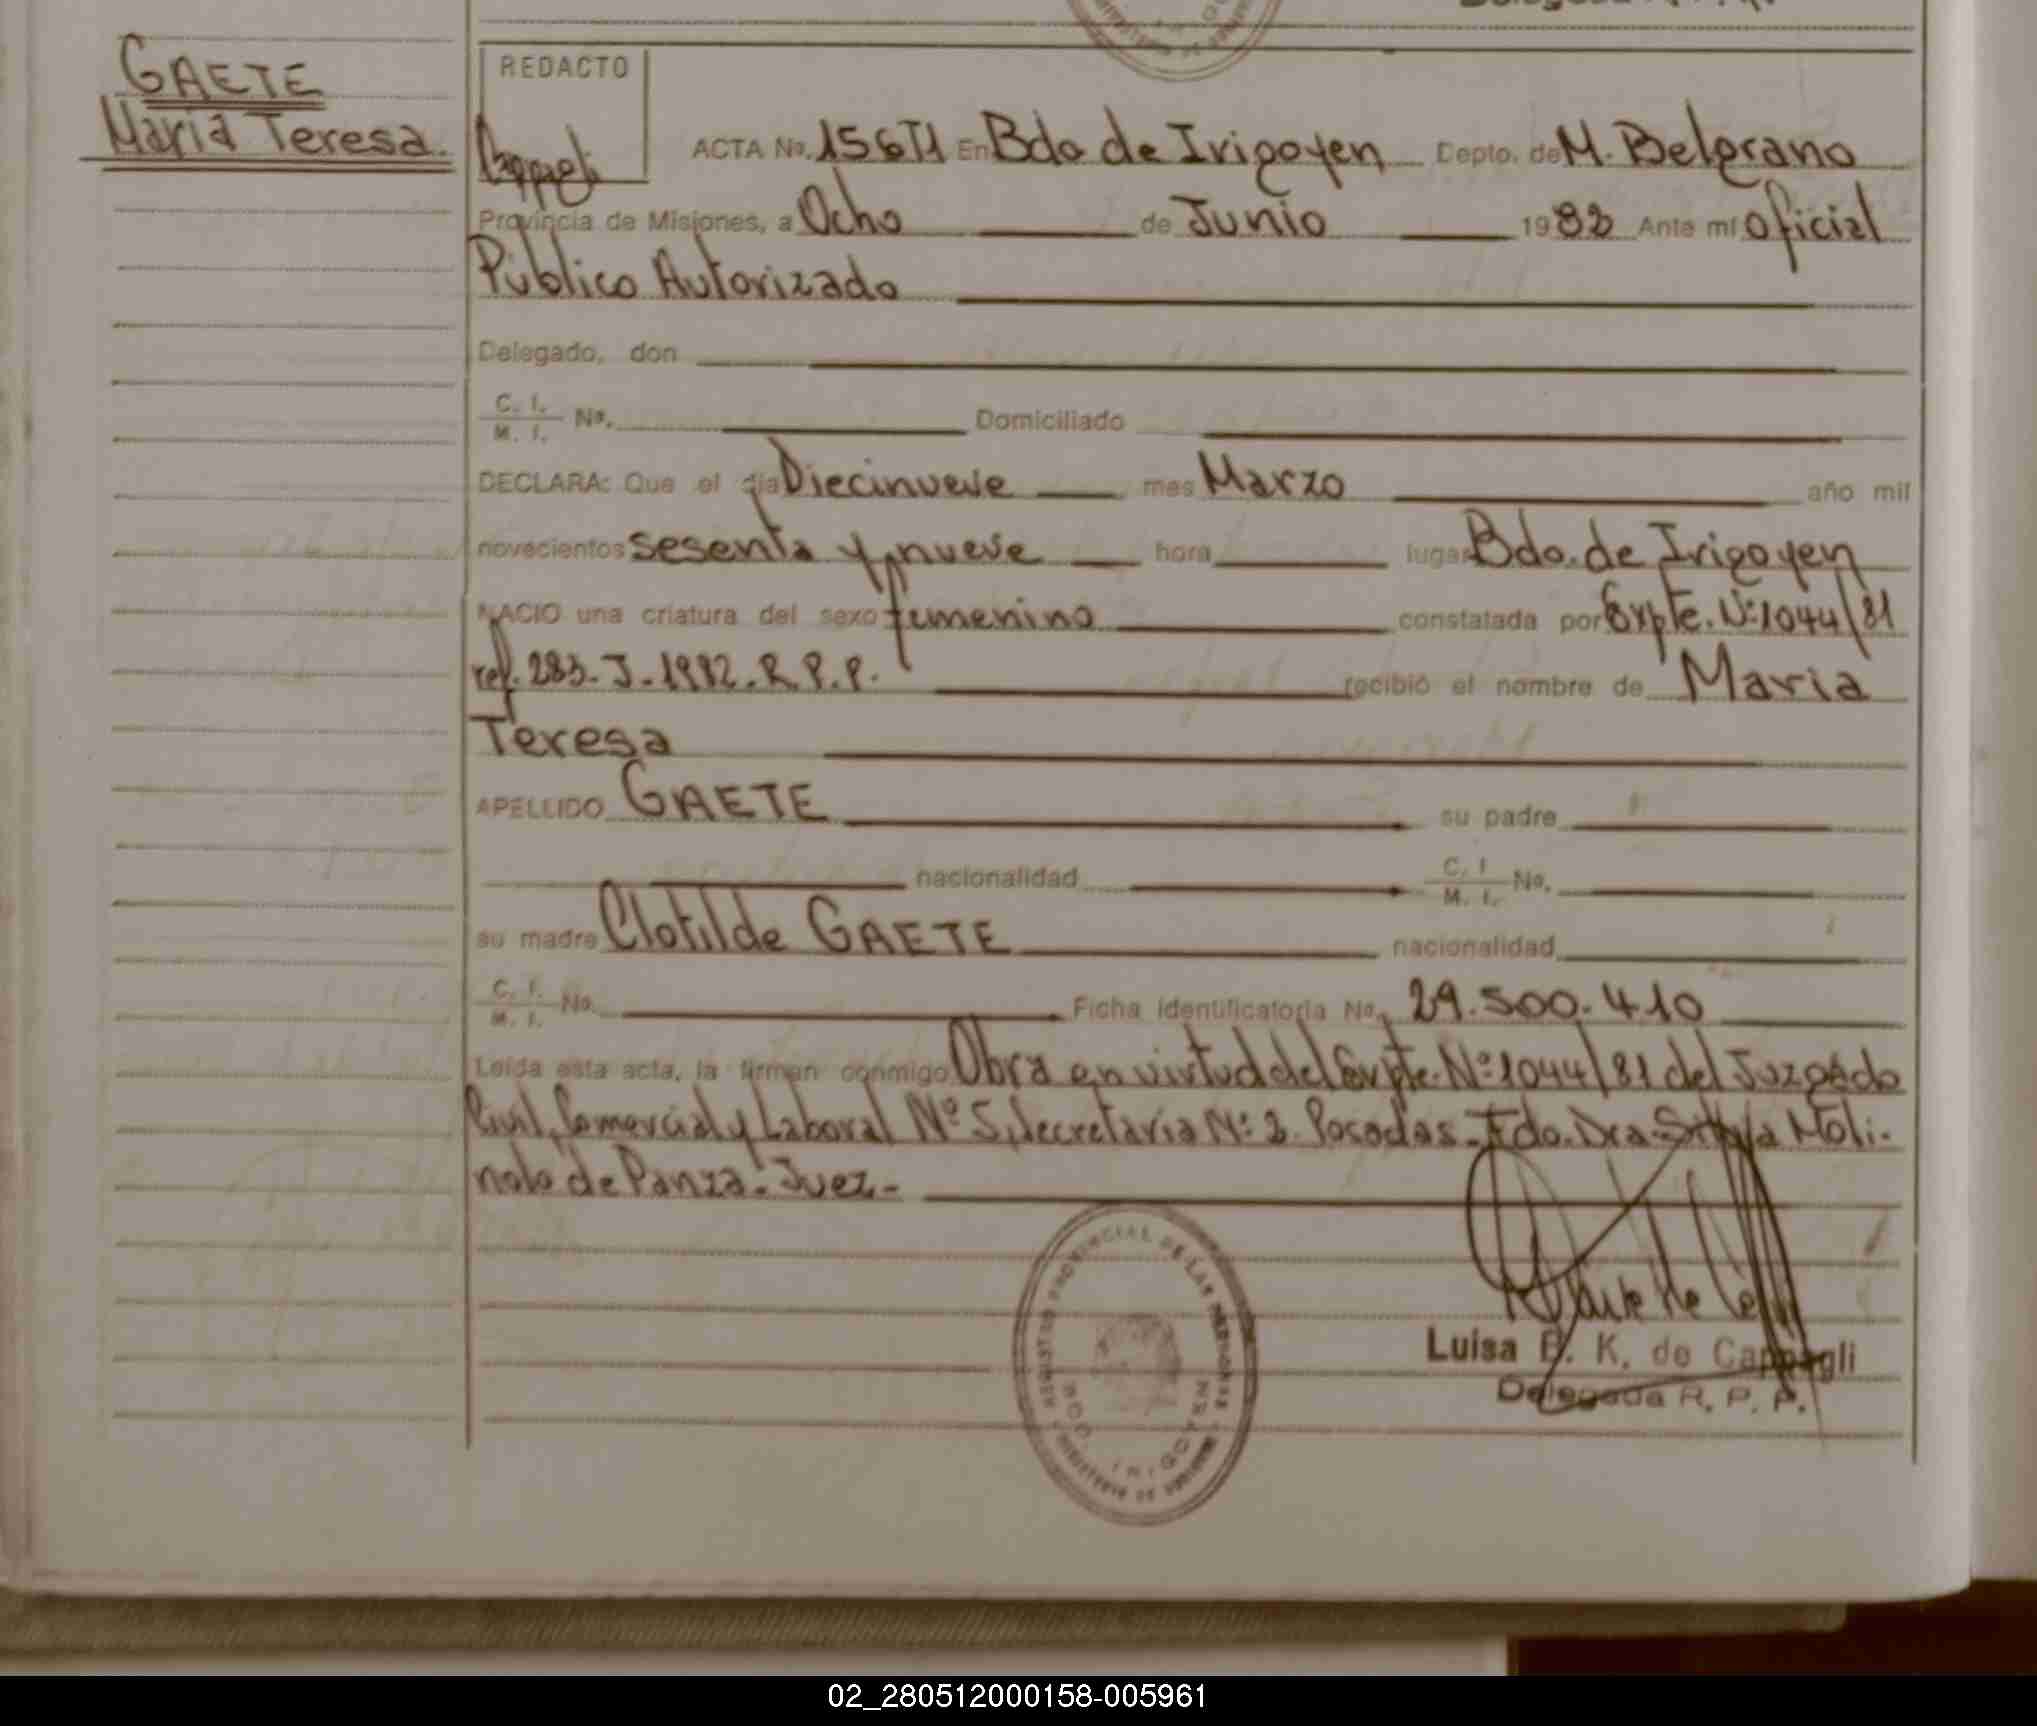 GAETE
Maria Teresa.
REDACTO
ACTA No. 156 En Bdo de Irigoyen Depto. de M. Belgrano
Provincia de Misiones, a Ocho de Junio 1982 Ante mí oficial
Público Autorizado
Delegado, don
C. I. M. I. No. Domiciliado
DECLARA: Que el día Diecinueve mes Marzo año mil
novecientos sesenta y nueve hora lugar Bdo. de Irigoyen
NACIO una criatura del sexo femenino constatada por Expte. Nº 1044/81
ref. 283-J-1982-R.P.P. recibió el nombre de Maria
Teresa
APELLIDO GAETE su padre
nacionalidad C. I. M. I. No.
su madre Clotilde GAETE nacionalidad
C. I. M. I. No. Ficha Identificatoria No. 29.500.410
Leída esta acta, la firman conmigo Obra en virtud del Expte. Nº 1044/81 del Juzgado
Civil, Comercial y Laboral Nº 5, Secretaria Nº 2. Posadas. Fdo. Dra. Silvia Moli-
nolo de Panza. Juez-
REGISTRO PROVINCIAL DE LAS PERSONAS
BDO. IRIGOYEN
MINISTERIO DE GOBIERNO
Luisa E. K. de Cappagli
Delegada R. P. P.
02_280512000158-005961